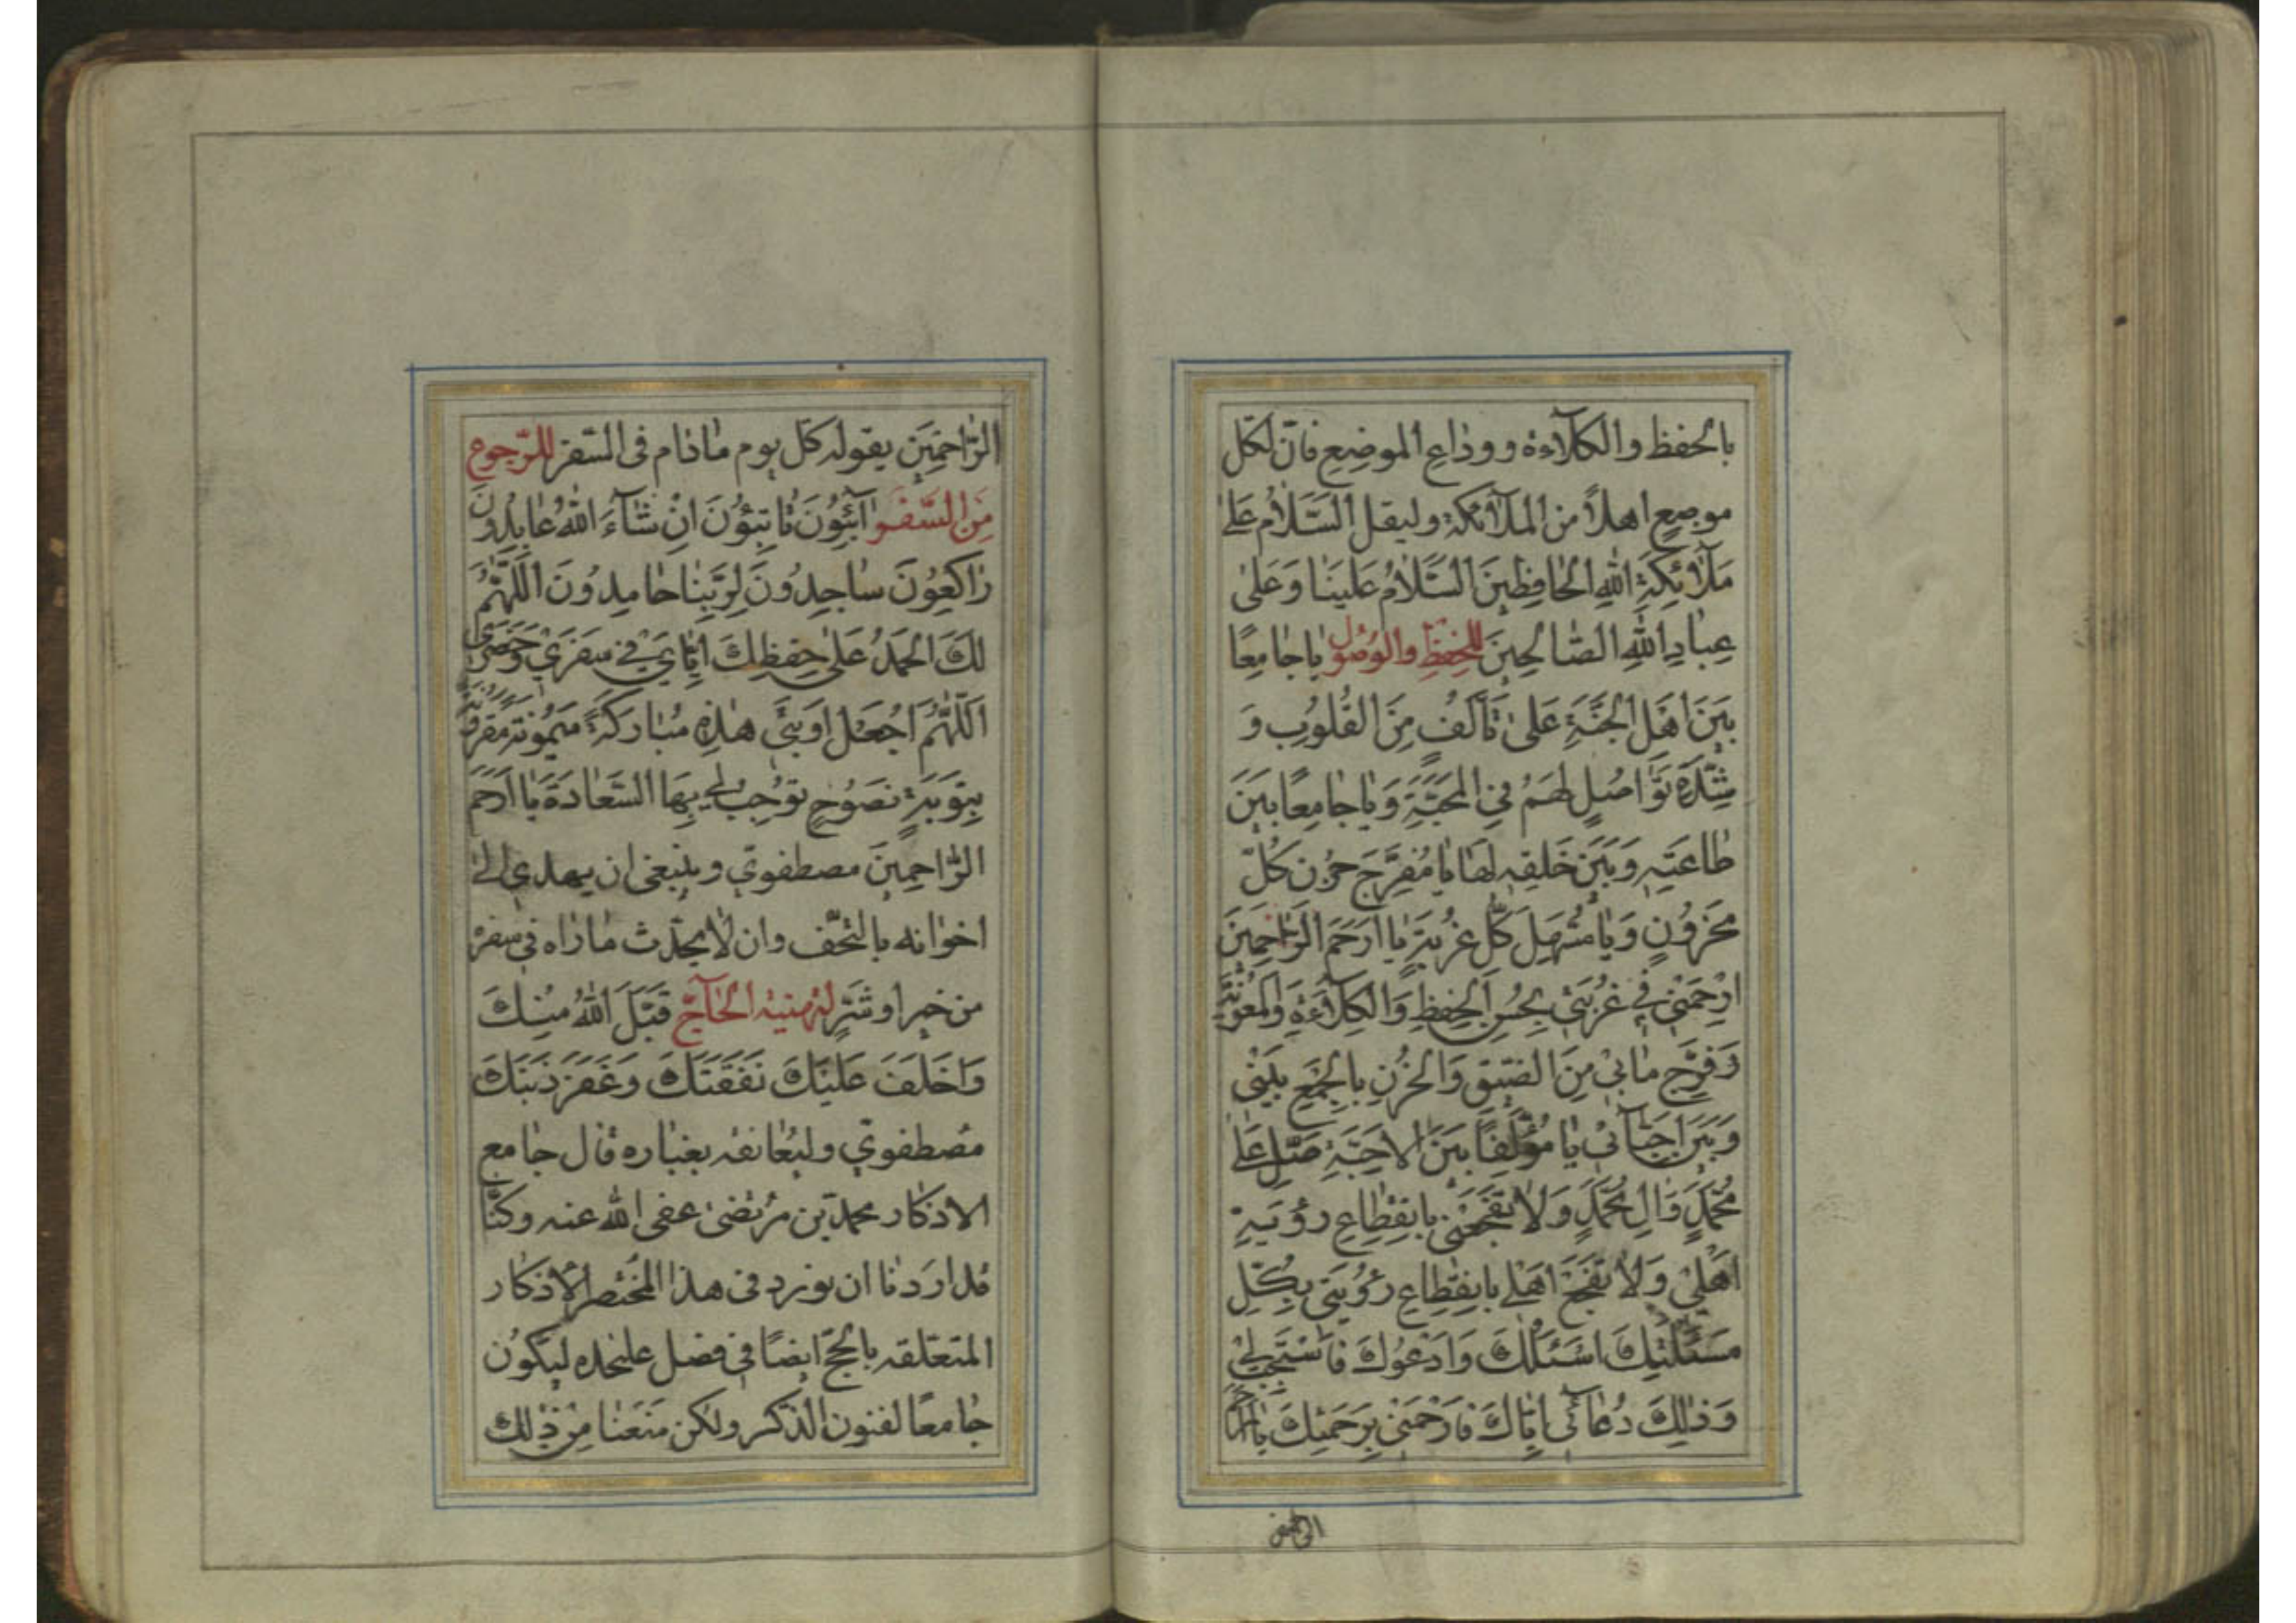 بالحفظ والكلآءة ووداع الموضع فانّ لكل
موضع اهلاً من الملآئكة وليقل السَّلامُ عَلىٰ
مَلآئِكَةِ اللهِ الحافِظينَ السَّلامُ عَلَينَا وَعَلىٰ
عِبادِ اللهِ الصّالِحينَ للحفظ والوصول يا جامِعًا
بَينَ اَهلِ الجَنَّةِ عَلىٰ تَأَلُّفٍ مِنَ القُلُوبِ وَ
شِدَّةِ تَواصُلٍ لَهُم فِي المَحَبَّةِ وَيا جامِعًا بَينَ
طاعَتِهِ وَبَينَ خَلقِهِ لَها يا مُفَرِّجَ حُزنِ كُلِّ
مَحزُونٍ وَيا مُسَهِّلَ كُلِّ غُربَةٍ يا اَرحَمَ الرّاحِمينَ
اِرحَمني في غُربَتي بِحُسنِ الحِفظِ وَالكِلآءَةِ وَالمَعُونَةِ
وَفَرِّج ما بي مِنَ الضّيقِ وَالحُزنِ بِالجَمعِ بَيني
وَبَينَ اَحِبّآئي يا مُؤَلِّفًا بَينَ الاَحِبَّةِ صَلِّ عَلىٰ
مُحَمَّدٍ وَالِ مُحَمَّدٍ وَلا تَفجَعني بِانقِطاعِ رُؤيَةِ
اَهلي وَلا تَفجَع اَهلي بِانقِطاعِ رُؤيَتي بِكُلِّ
مَسئَلَتِكَ اَسئَلُكَ وَاَدعُوكَ فَاستَجِب لي
وَذٰلِكَ دُعآئي اِيّاكَ فَارحَمني بِرَحمَتِكَ يا اَرحَمَ
الراحمين
الرّاحِمينَ يقوله كل يوم مادام فى السّفر للرّجوع
مِنَ السَّفَر آئِبُونَ تائِبُونَ اِن شآءَ اللهُ عابِدُونَ
راكِعُونَ ساجِدُونَ لِرَبِّنا حامِدُونَ اَللّهُمَّ
لَكَ الحَمدُ عَلىٰ حِفظِكَ اِيّايَ في سَفَري وَحَضَري
اَللّهُمَّ اجعَل اَوبَتي هٰذِهِ مُبارَكَةً مَيمُونَةً مَقرُونَةً
بِتَوبَةٍ نَصُوحٍ تُوجِبُ لي بِهَا السَّعادَةَ يا اَرحَمَ
الرّاحِمينَ مصطفوي وينبغى ان يهدي الى
اخوانه بالتحف وان لا يحدّث ما راه في سفره
من خير او شرّ لتهنية الحآجّ قَبِلَ اللهُ مِنكَ
وَاَخلَفَ عَلَيكَ نَفَقَتَكَ وَغَفَرَ ذَنبَكَ
مصطفوي وليعانقه بغباره قال جامع
الاذكار محمد بن مرتضى عفى الله عنه وكنّا
قد اردنا ان نورد في هذا المختصر الاذكار
المتعلقه بالحجّ ايضًا في فصل عليحده ليكون
جامعًا لفنون الذكر ولكن منعنا من ذلك